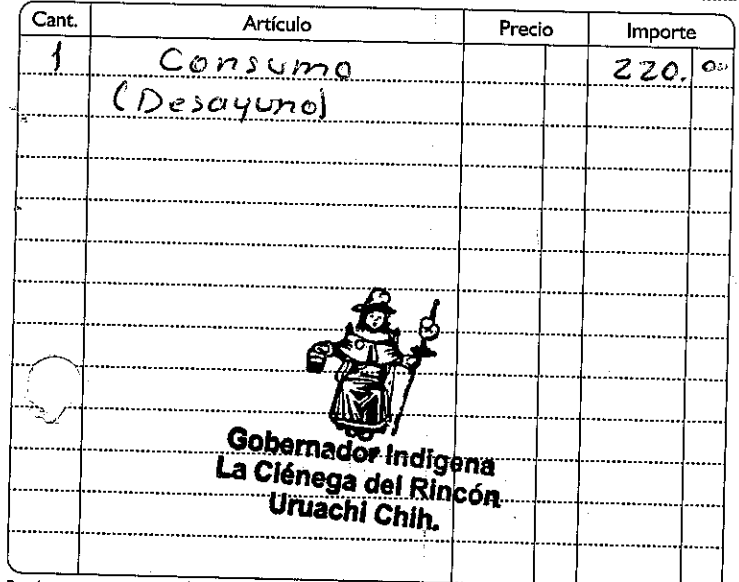 Cant. Artículo Precio Importe
1 Consumo 220. 00
(Desayuno)
Gobernador Indígena
La Ciénega del Rincón
Uruachi Chih.